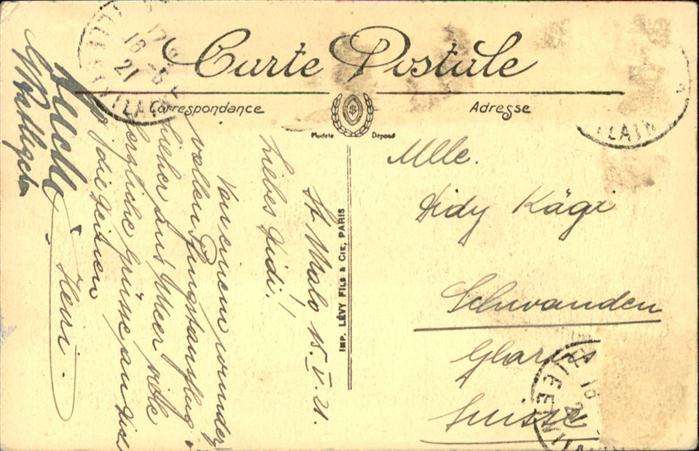 Carte Postale
Correspondance
Adresse
Modèle Déposé
IMP. LÉVY FILS & CIE, PARIS
St Malo 15. V. 21.
Liebes Didi!
Von einem wunder
vollen Pfingstausflug
hieher ans Meer
herzliche Grüsse an Dich
die
Henri.
Mlle.
Didy Kägi
Schwanden
Glarus
Suisse